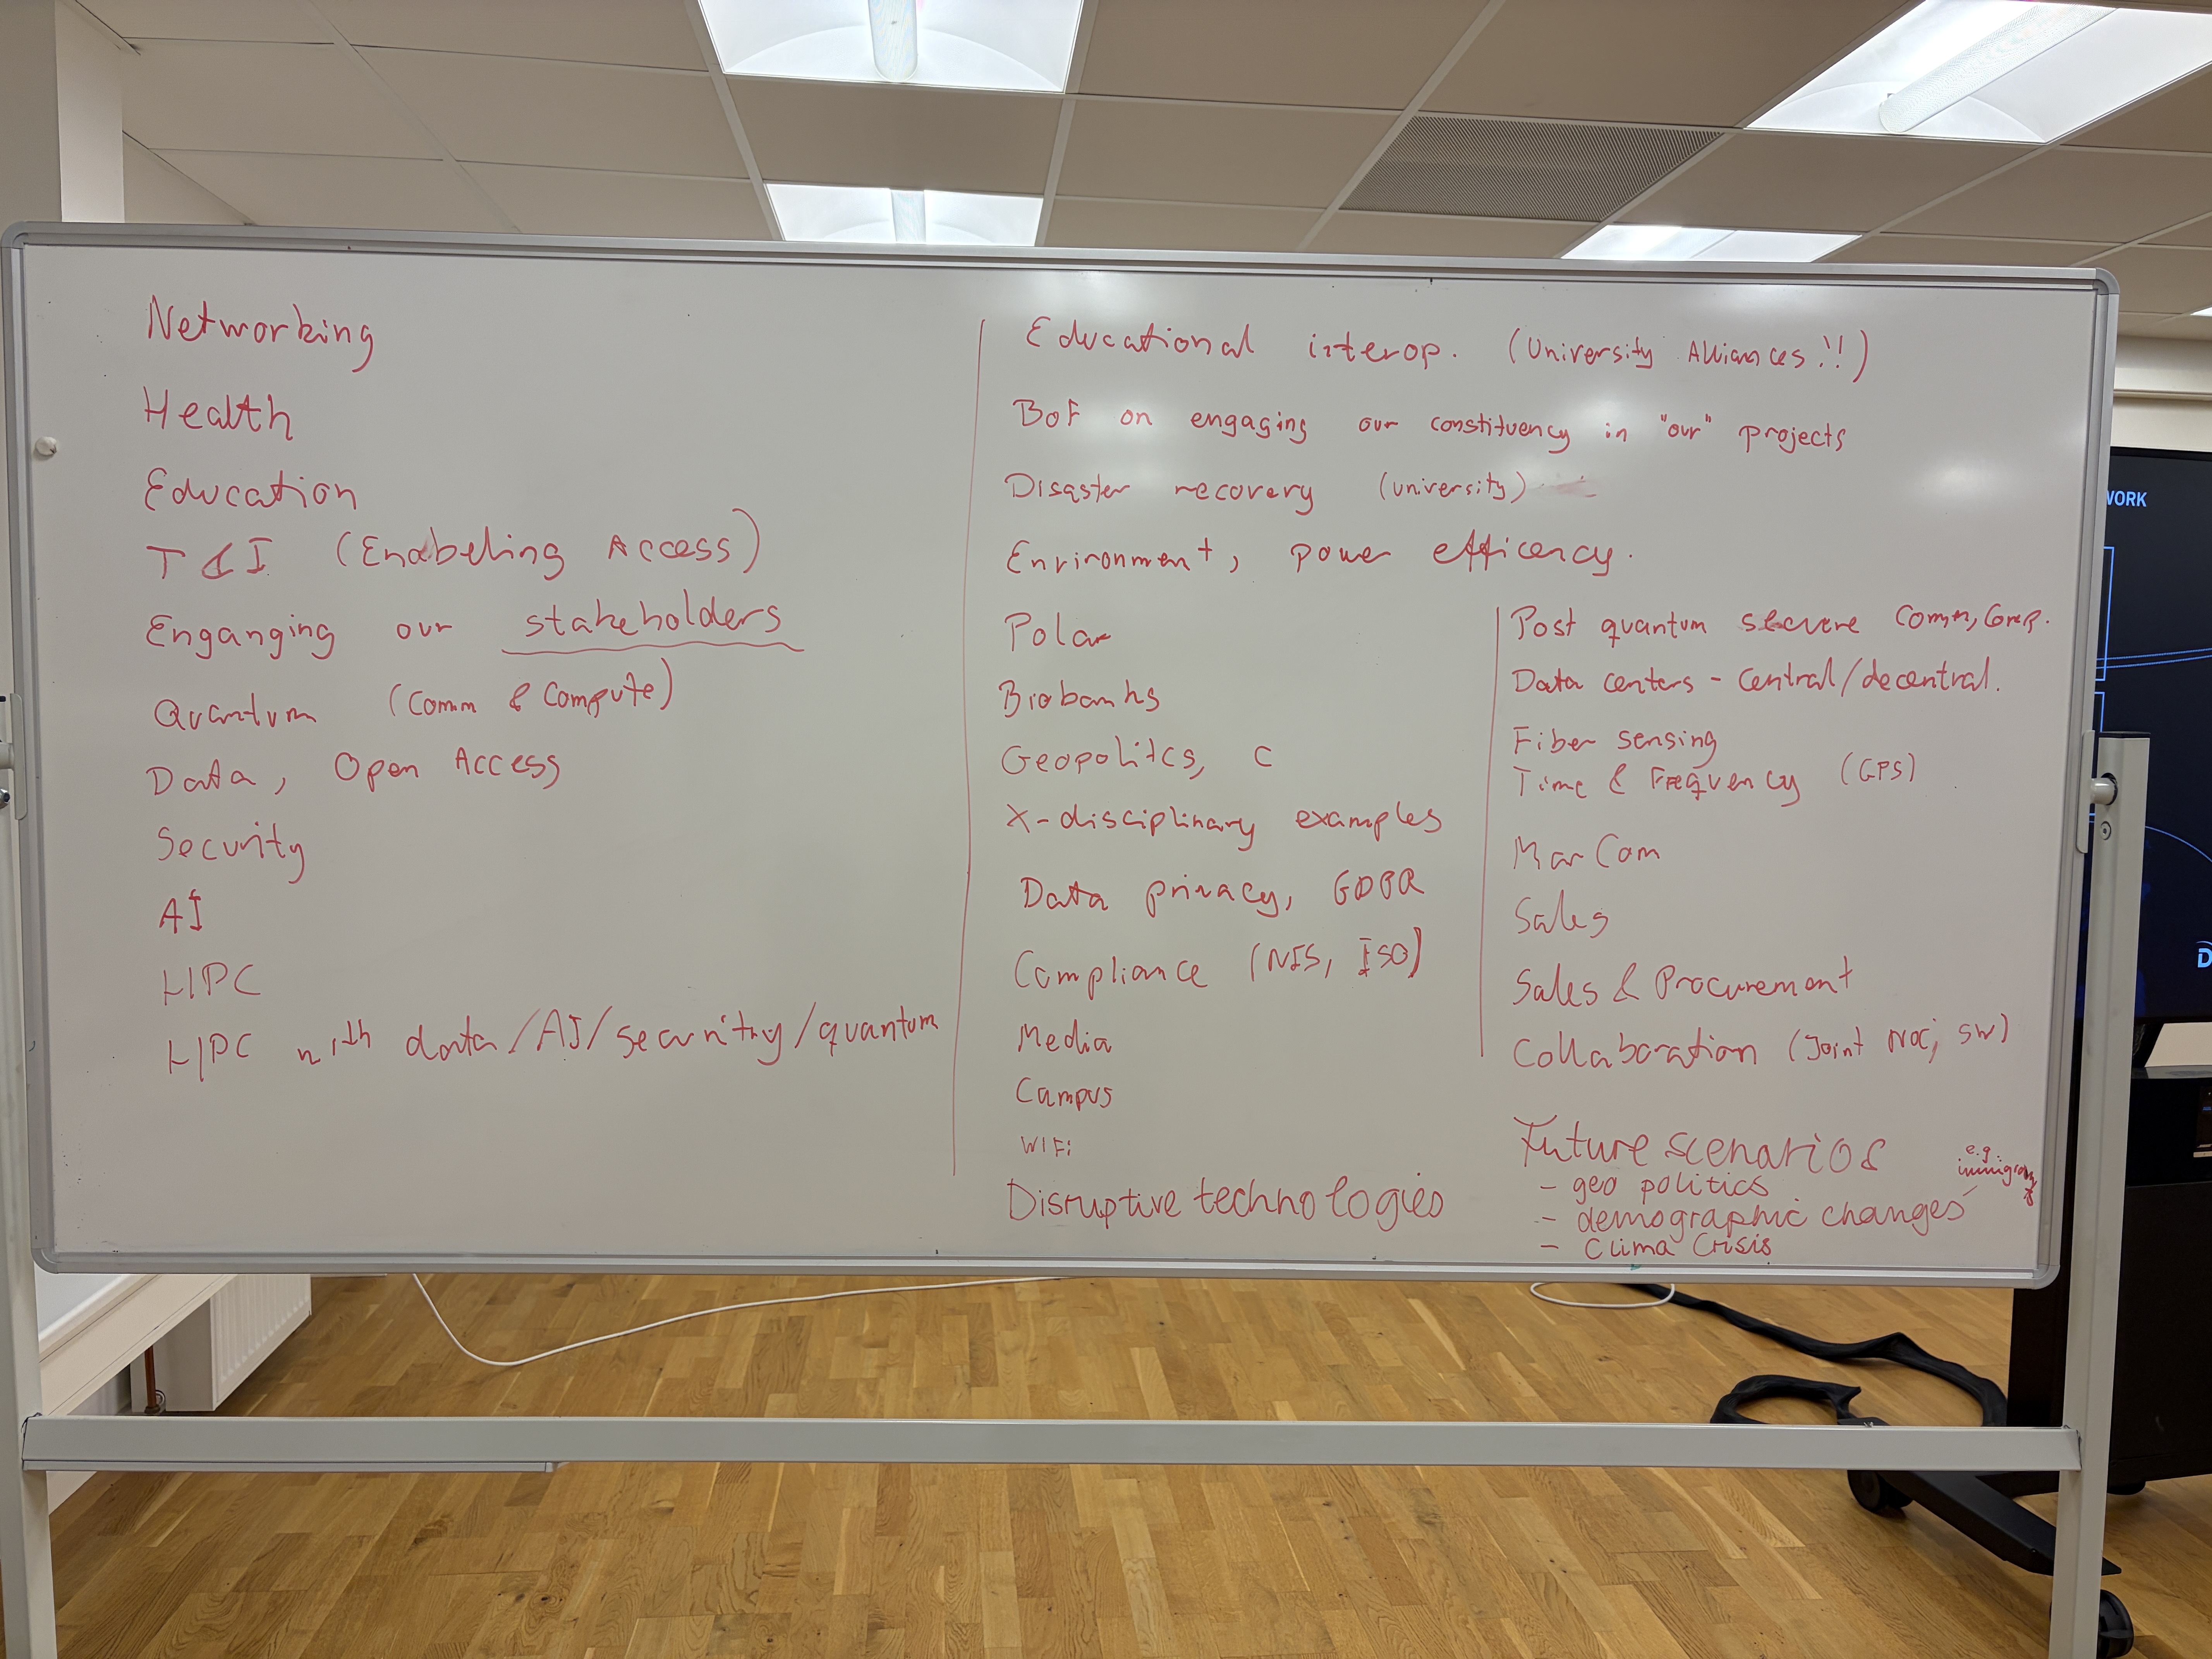 Networking
Health
Education
T & I (Enabeling Access)
Enganging our stakeholders
Quantum (Comm & Compute)
Data, Open Access
Security
AI
HPC
HPC with data/AI/security/quantum
Educational interop. (University Alliances!!)
BoF on engaging our constituency in "our" projects
Disaster recovery (university)
Environment, power efficency.
Polar
Biobanks
Geopolitcs, C
X-disciplinary examples
Data privacy, GDPR
Compliance (NIS, ISO)
Media
Campus
WIFi
Disruptive technologies
Post quantum secure Comm, Comp.
Data centers - central/decentral.
Fiber sensing
Time & Frequency (GPS)
MarCom
Sales
Sales & Procurement
Collaboration (Joint NOC, SW)
Future scenarios
- geo politics
e.g.
- demographic changes
- Clima Crisis
WORK